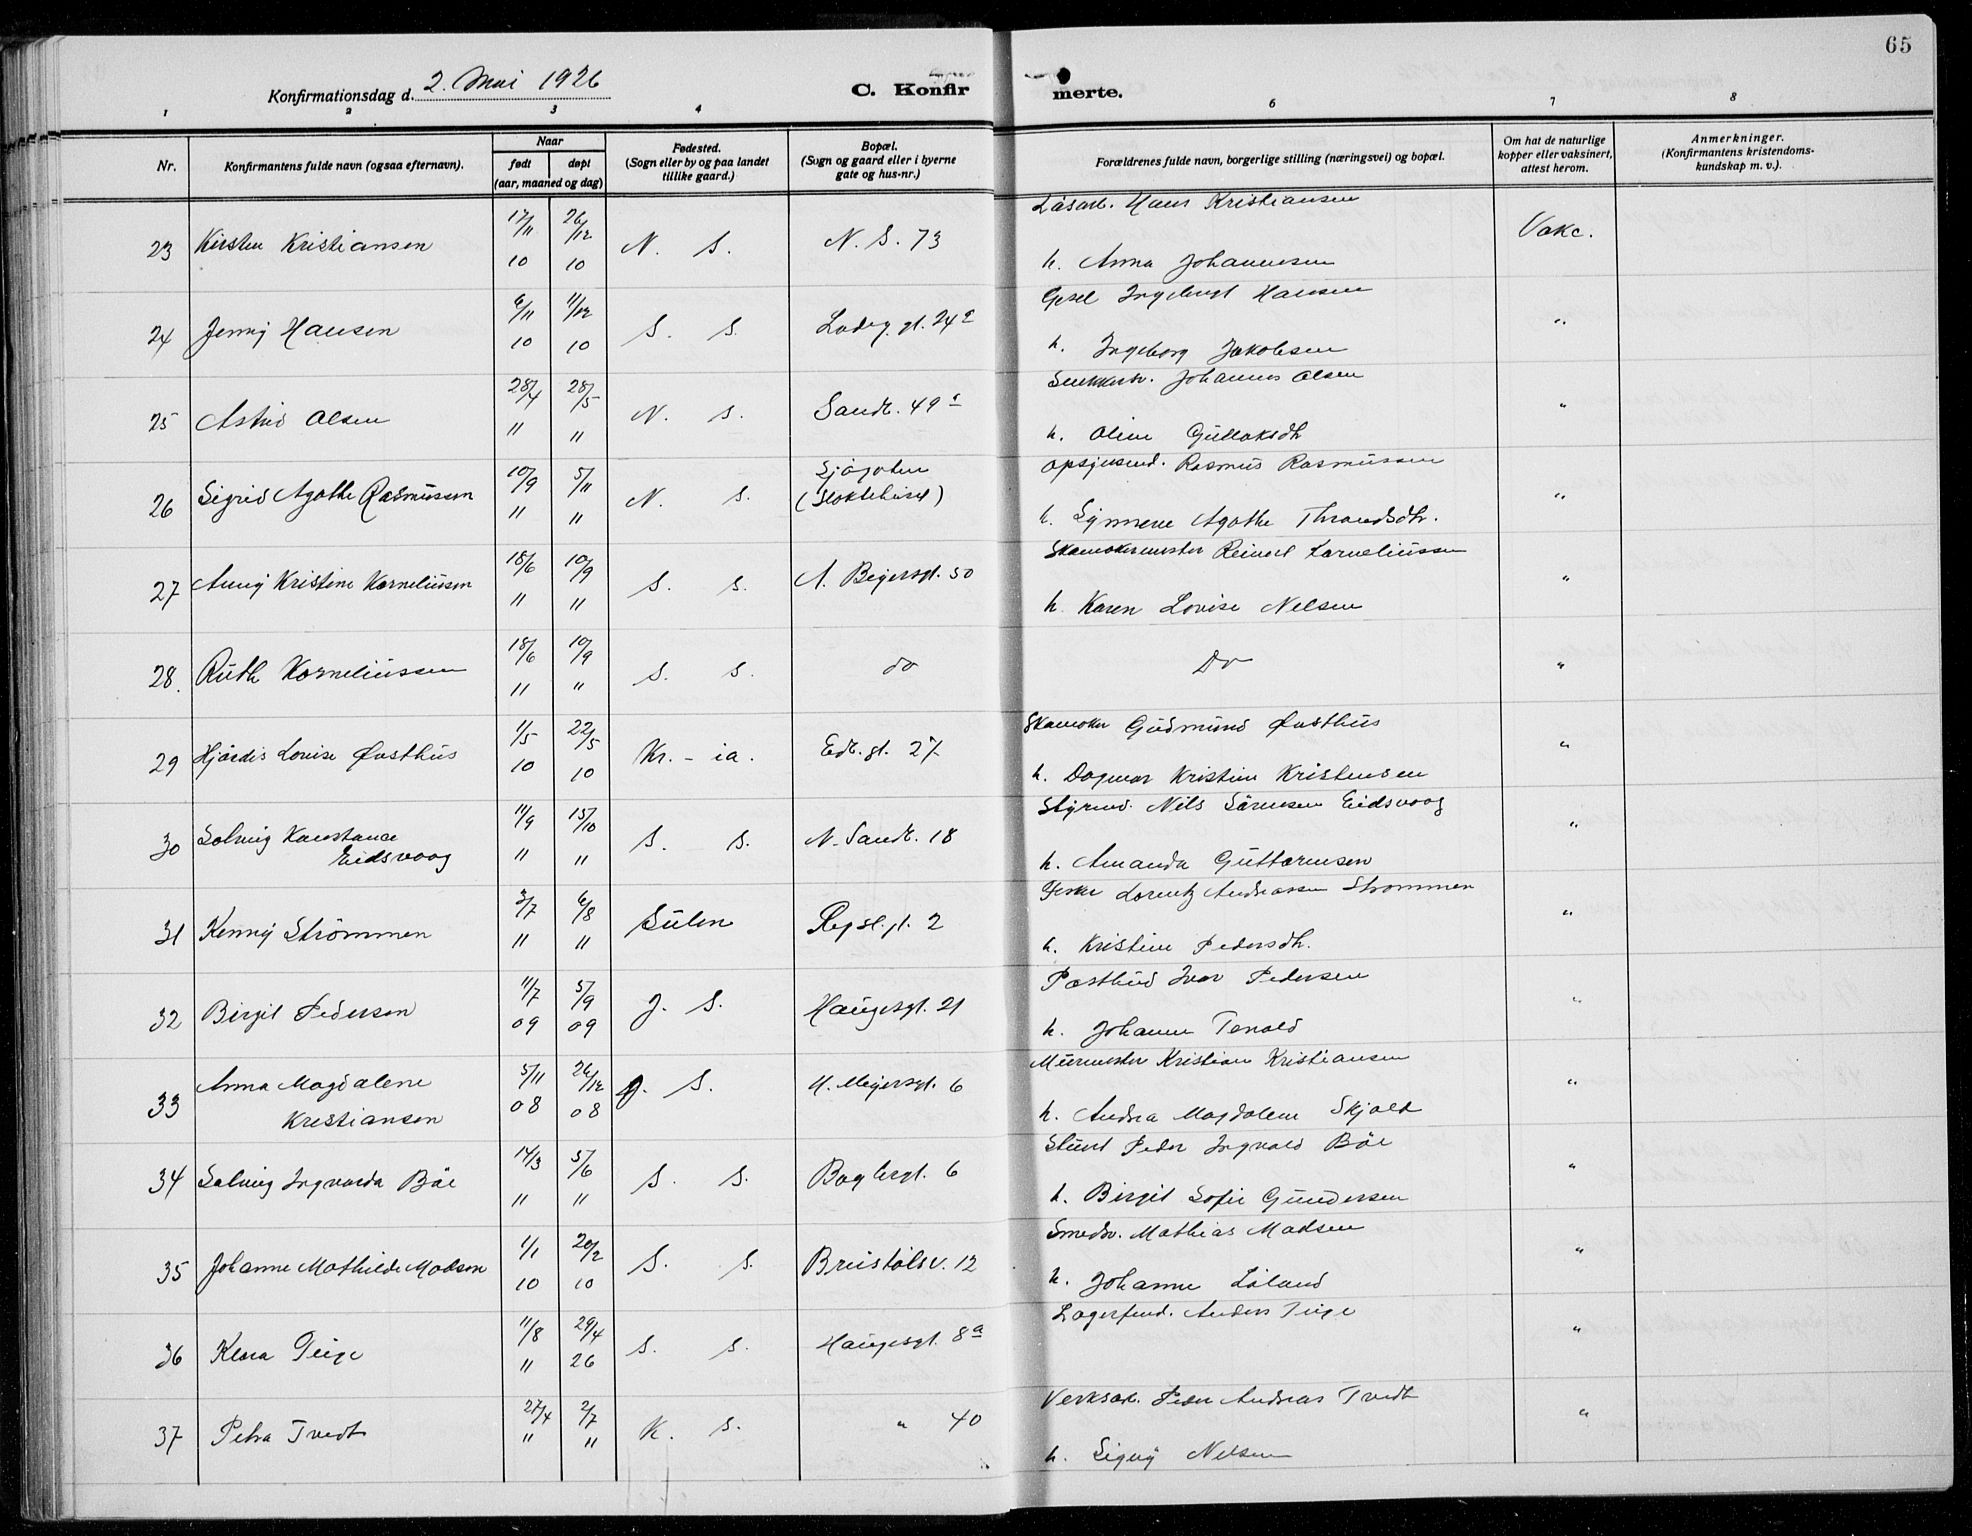 65
Konfirmationsdag d. 2. Mai 1926
C. Konfir merte.
1 2 3 4 6 7 8
Nr.
Konfirmantens fulde navn (ogsaa efternavn).
Naar
født døpt
(aar, maaned og dag)
Fødested.
(Sogn eller by og paa landet
tillike gaard.)
Bopæl.
(Sogn og gaard eller i byerne
gate og hus-nr.)
Forældrenes fulde navn, borgerlige stilling (næringsvei) og bopæl.
Om hat de naturlige
kopper eller vaksinert,
attest herom.
Anmerkninger.
(Konfirmantens kristendoms-
kundskap m. v.).
Hans Kristiansen
23 Kirsten Kristiansen 17/11 10 26/12 10 N. S. N. S. 73 Vakc.
h. Anna Johannesen
Ingebrigt Hansen
24 Jenny Hansen 6/11 10 11/12 10 S. S. Ladeg. gt. 24 "
h. Ingeborg Jakobsen
Johannes Olsen
25 Astrid Olsen 28/4 11 28/5 11 N. S. Sandv. 49 "
h. Oline Gullaksdtr
Opsynsmd. Rasmus Rasmussen
26 Sigrid Agathe Rasmussen 10/9 11 5/11 11 N. S. Sjøgaten (Slaktehuset) "
h. Synneve Agathe Thrandsdtr.
Skomakermester Reinert Korneliussen
27 Anny Kristine Korneliussen 18/6 11 10/9 11 S. S. A. Beyersgt. 50 "
h. Karen Lovise Nelsen
28. Ruth Korneliussen 18/6 11 10/9 " S. S. do Do "
Skomaker Gudmund Øvsthus
29 Hjørdis Lovise Øvsthus 1/5 10 22/5 10 Kr. - ia. Edv. gt. 27 "
h. Dagmar Kristine Kristensen
Styrmd. Nils Sørensen Eidsvaag
30 Solveig Konstance Eidsvaag 11/9 11 15/10 11 S. S. N. Sandv. 18 "
h. Amanda Guttormsen
Lorentz Andreassen Strømmen
31 Kenny Strömmen 3/7 11 6/8 11 Sulen Repsl. gt. 2 "
h. Kristine Pedersdtr.
Postbud Ivar Pedersen
32 Birgit Pedersen 11/7 09 5/9 09 J. S. Haugesgt. 21 "
h. Johanne Tenold
Murmester Kristian Kristiansen
33 Anna Magdalene Kristiansen 5/11 08 26/12 08 J. S. H. Meyersgt. 6 "
h. Andrea Magdalene Skjold
Peder Ingvald Böe
34 Solveig Ingvarda Böe 14/3 11 5/6 11 S. S. Bogbergt. 6 "
h. Birgit Sofie Gundersen
Smedsv. Mathias Madsen
35 Johanne Mathilde Madsen 1/1 10 20/2 10 S. S. Breistølsv. 12 "
h. Johanne Løland
Lagerfmd. Anders Teige
36 Klara Teige 11/8 11 29/4 26 S. S. Haugesgt. 8a "
Verksarb. Peder Andreas Tvedt
37 Petra Tvedt 27/4 11 2/7 11 K. S. " 40 "
h. Signy Nelsen